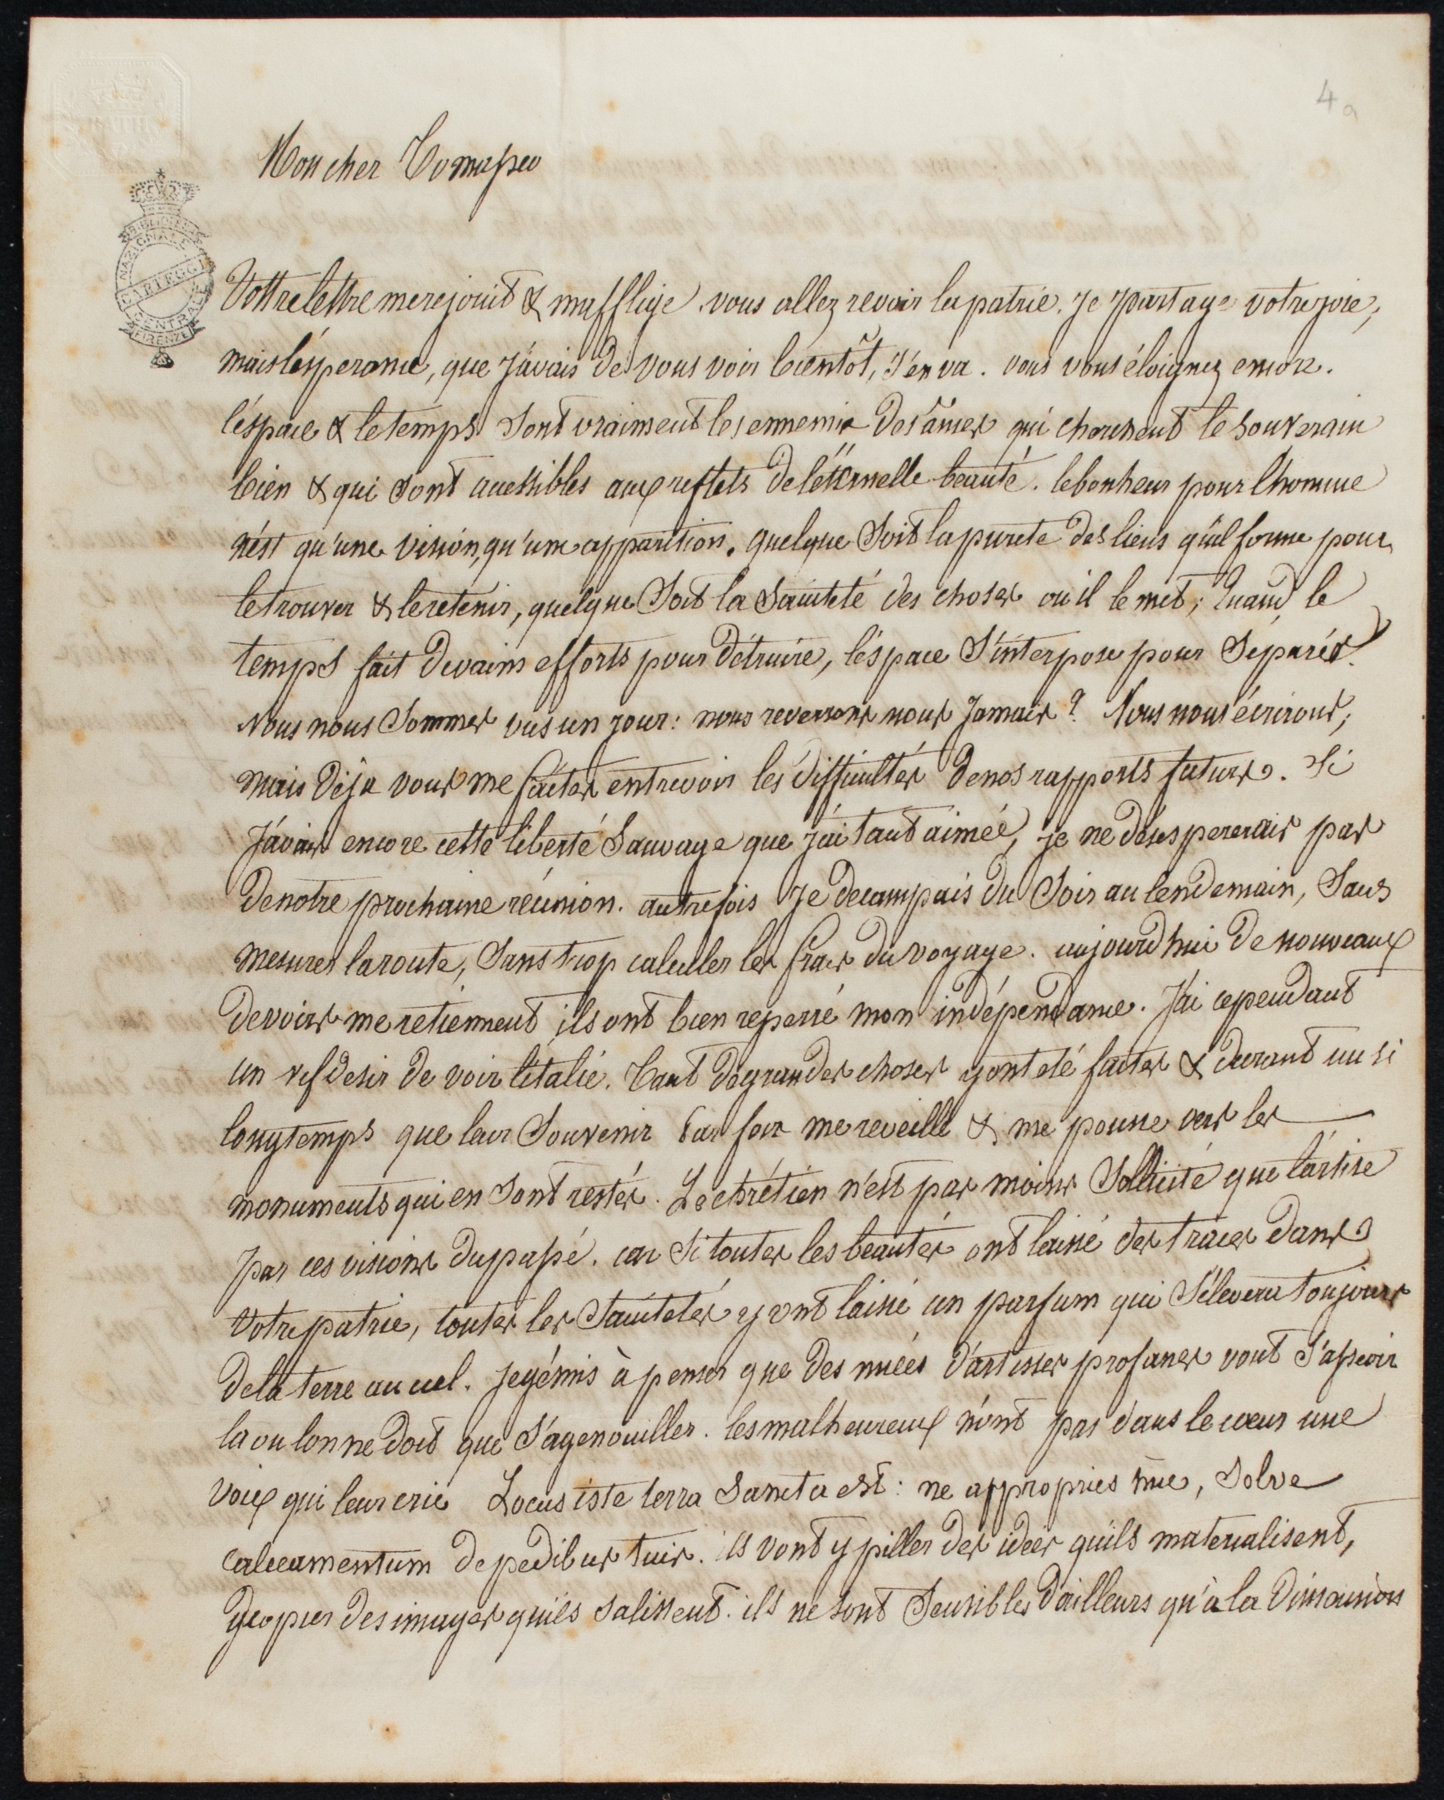 4a
Mon cher Tomaseo
BIBLIOTECA
NAZIONALE
CARTEGGI
CENTRALE
FIRENZE
Vottre lettre me rejouit & m'afflige. vous allez revoir la patrie. Je partage votre joie,
mais l'ésperance, que j'avais de vous voir bientôt, s'en va. vous vous éloignez encore.
l'éspace & le temps sont vraiment les ennemis des âmes qui cherchent le souverain
bien & qui sont accessibles aux reflets de l'éternelle beauté. le bonheur pour l'homme
n'ést qu'une vision, qu'une apparition. quelque soit la pureté des liens qu'il forme pour
le trouver & le retenir, quelque soit la sainteté des choses où il le met; quand le
temps fait de vains efforts pour détruire, l'éspace s'interpose pour séparér.
Nous nous sommes vus un jour: nous reverrons nous jamais? Nous nous écrirons;
mais déja vous me faites entrevoir les difficultés de nos rapports futurs. Si
J'avais encore cette liberté sauvage que j'ai tant aimée, je ne désespererais pas
de notre prochaine réunion. autrefois je decampais du soir au lendemain, sans
mesurer la route, sans trop calculer les frais du voyage. aujourd'hui de nouveaux
devoirs me retiennent ils ont bien resserré mon indépendance. J'ai cependant
un vif desir de voir l'italie. Tant de grandes choses y ont eté faites & durant un si
longtemps que leur souvenir par fois me reveille & me pousse vers les
monuments qui en sont restés. Le chrétien n'est pas moins sollicité que l'artiste
par ces visions du passé. car si toutes les beautés ont laissé des traces dans
votre patrie, toutes les saintetés y ont laissé un parfum qui s'élevera toujours
de la terre au ciel. Je gémis à penser que des nuées d'artistes profanes vont s'asseoir
la ou lon ne doit que s'agenouiller. les malheureux n'ont pas dans le cœur une
voix qui leur crie Locus iste terra sancta est: ne appropries huc, solve
calceamentum de pedibus tuis. ils vont y piller des idées qu'ils materialisent,
y copier des images qu'ils salissent. ils ne sont sensibles d'ailleurs qu'à la dimension